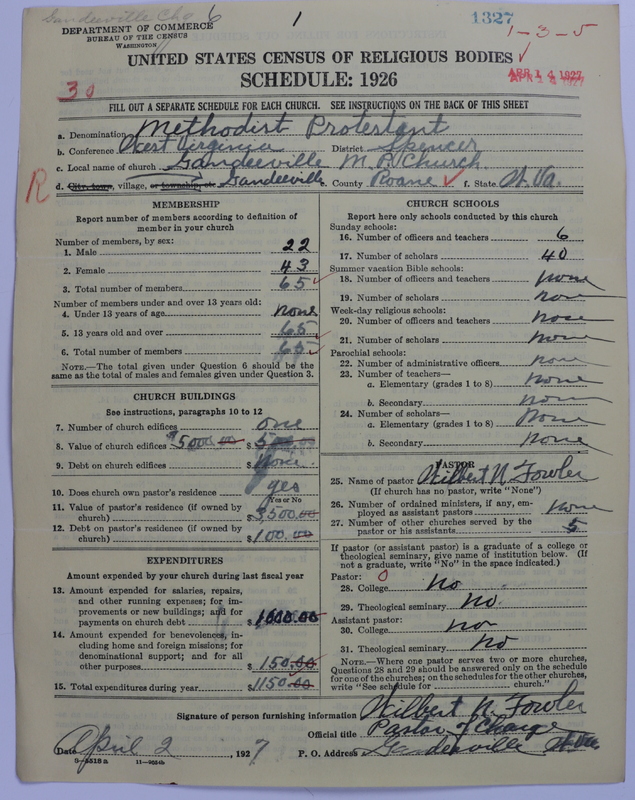 Gandeeville Cho 6
1
1327
DEPARTMENT OF COMMERCE
BUREAU OF THE CENSUS
WASHINGTON
1-3-5
UNITED STATES CENSUS OF RELIGIOUS BODIES
SCHEDULE: 1926
APR 14 1927
30
FILL OUT A SEPARATE SCHEDULE FOR EACH CHURCH. SEE INSTRUCTIONS ON THE BACK OF THIS SHEET
a. Denomination Methodist Protestant
b. Conference West Virginia District Spencer
c. Local name of church Gandeeville M.P. Church
R
d. City, town, village, or township, etc. Gandeeville County Roane f. State W. Va.
MEMBERSHIP
Report number of members according to definition of
member in your church
Number of members, by sex:
1. Male 22
2. Female 43
3. Total number of members 65
Number of members under and over 13 years old:
4. Under 13 years of age none
5. 13 years old and over 65
6. Total number of members 65
NOTE.—The total given under Question 6 should be
the same as the total of males and females given under Question 3.
CHURCH BUILDINGS
See instructions, paragraphs 10 to 12
7. Number of church edifices one
8. Value of church edifices $5000.00 $500.00
9. Debt on church edifices $None.
10. Does church own pastor's residence yes
Yes or No
11. Value of pastor's residence (if owned by
church) $3,500.00
12. Debt on pastor's residence (if owned by
church) $100.00
EXPENDITURES
Amount expended by your church during last fiscal year
13. Amount expended for salaries, repairs,
and other running expenses; for im-
provements or new buildings; and for
payments on church debt $1000.00
14. Amount expended for benevolences, in-
cluding home and foreign missions; for
denominational support; and for all
other purposes $150.00
15. Total expenditures during year $1150.00
CHURCH SCHOOLS
Report here only schools conducted by this church
Sunday schools:
16. Number of officers and teachers 6
17. Number of scholars 40
Summer vacation Bible schools:
18. Number of officers and teachers none
19. Number of scholars non
Week-day religious schools:
20. Number of officers and teachers none
21. Number of scholars none
Parochial schools:
22. Number of administrative officers none
23. Number of teachers—
a. Elementary (grades 1 to 8) none
b. Secondary none
24. Number of scholars—
a. Elementary (grades 1 to 8) None
b. Secondary none
PASTOR
25. Name of pastor Wilbert N. Fowler
(If church has no pastor, write "None")
26. Number of ordained ministers, if any, em-
ployed as assistant pastors none
27. Number of other churches served by the
pastor or his assistants 5
If pastor (or assistant pastor) is a graduate of a college or
theological seminary, give name of institution below. (If
not a graduate, write "No" in the space indicated.)
Pastor: 0
28. College No
29. Theological seminary No
Assistant pastor:
30. College No
31. Theological seminary No
NOTE.—Where one pastor serves two or more churches,
Questions 28 and 29 should be answered only on the schedule
for one of the churches; on the schedules for the other churches,
write "See schedule for church."
Signature of person furnishing information Wilbert N. Fowler
Official title Pastor of Charge
Date April 2, 1927 P. O. Address Gandeeville W. Va.
8-5518 a 11-9654b